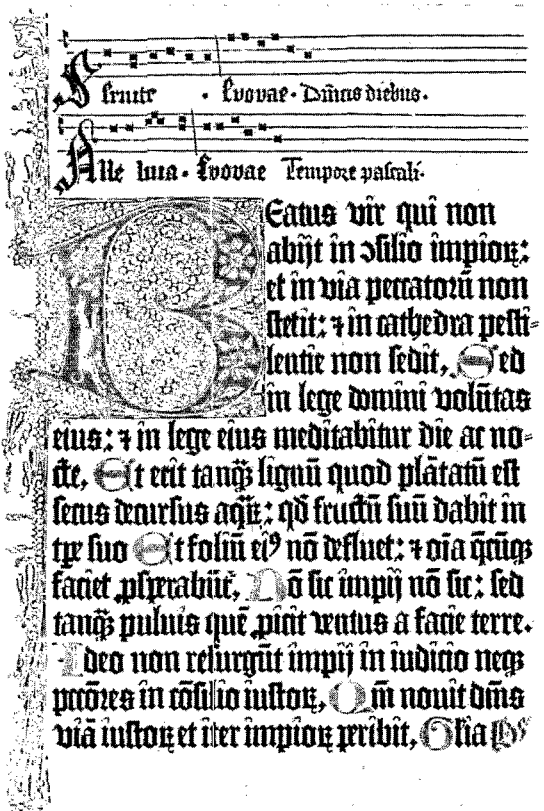 Seruite . Euouae. Dn̄icis diebus.
Alle luia. Euouae Tempore paſcali.
Beatus vir qui non
abijt in ↄſilio impioꝝ:
et in via peccatoꝝ non
ſtetit: ⁊ in cathedra peſti⸗
lentie non ſedit, Sed
in lege domini volūtas
eius: ⁊ in lege eius meditabitur die ac no⸗
cte, Et erit tanqᷓꝫ lignū quod plātatū eſt
ſecus decurſus aqꝝ: qd̄ fructū ſuū dabit in
tꝑe ſuo Et foliū eiꝰ nō defluet: ⁊ oīa q̄cūqꝫ
faciet ꝓſperabūt̄, Nō ſic impij nō ſic: ſed
tanqᷓꝫ puluis quē ꝓicit ventus a facie terre.
Ideo non reſurgūt impij in iudicio neqꝫ
pccōres in cōſilio iuſtoꝝ, Qm̄ nouit dn̄s
viā iuſtoꝝ et iter impioꝝ peribit, Glia P